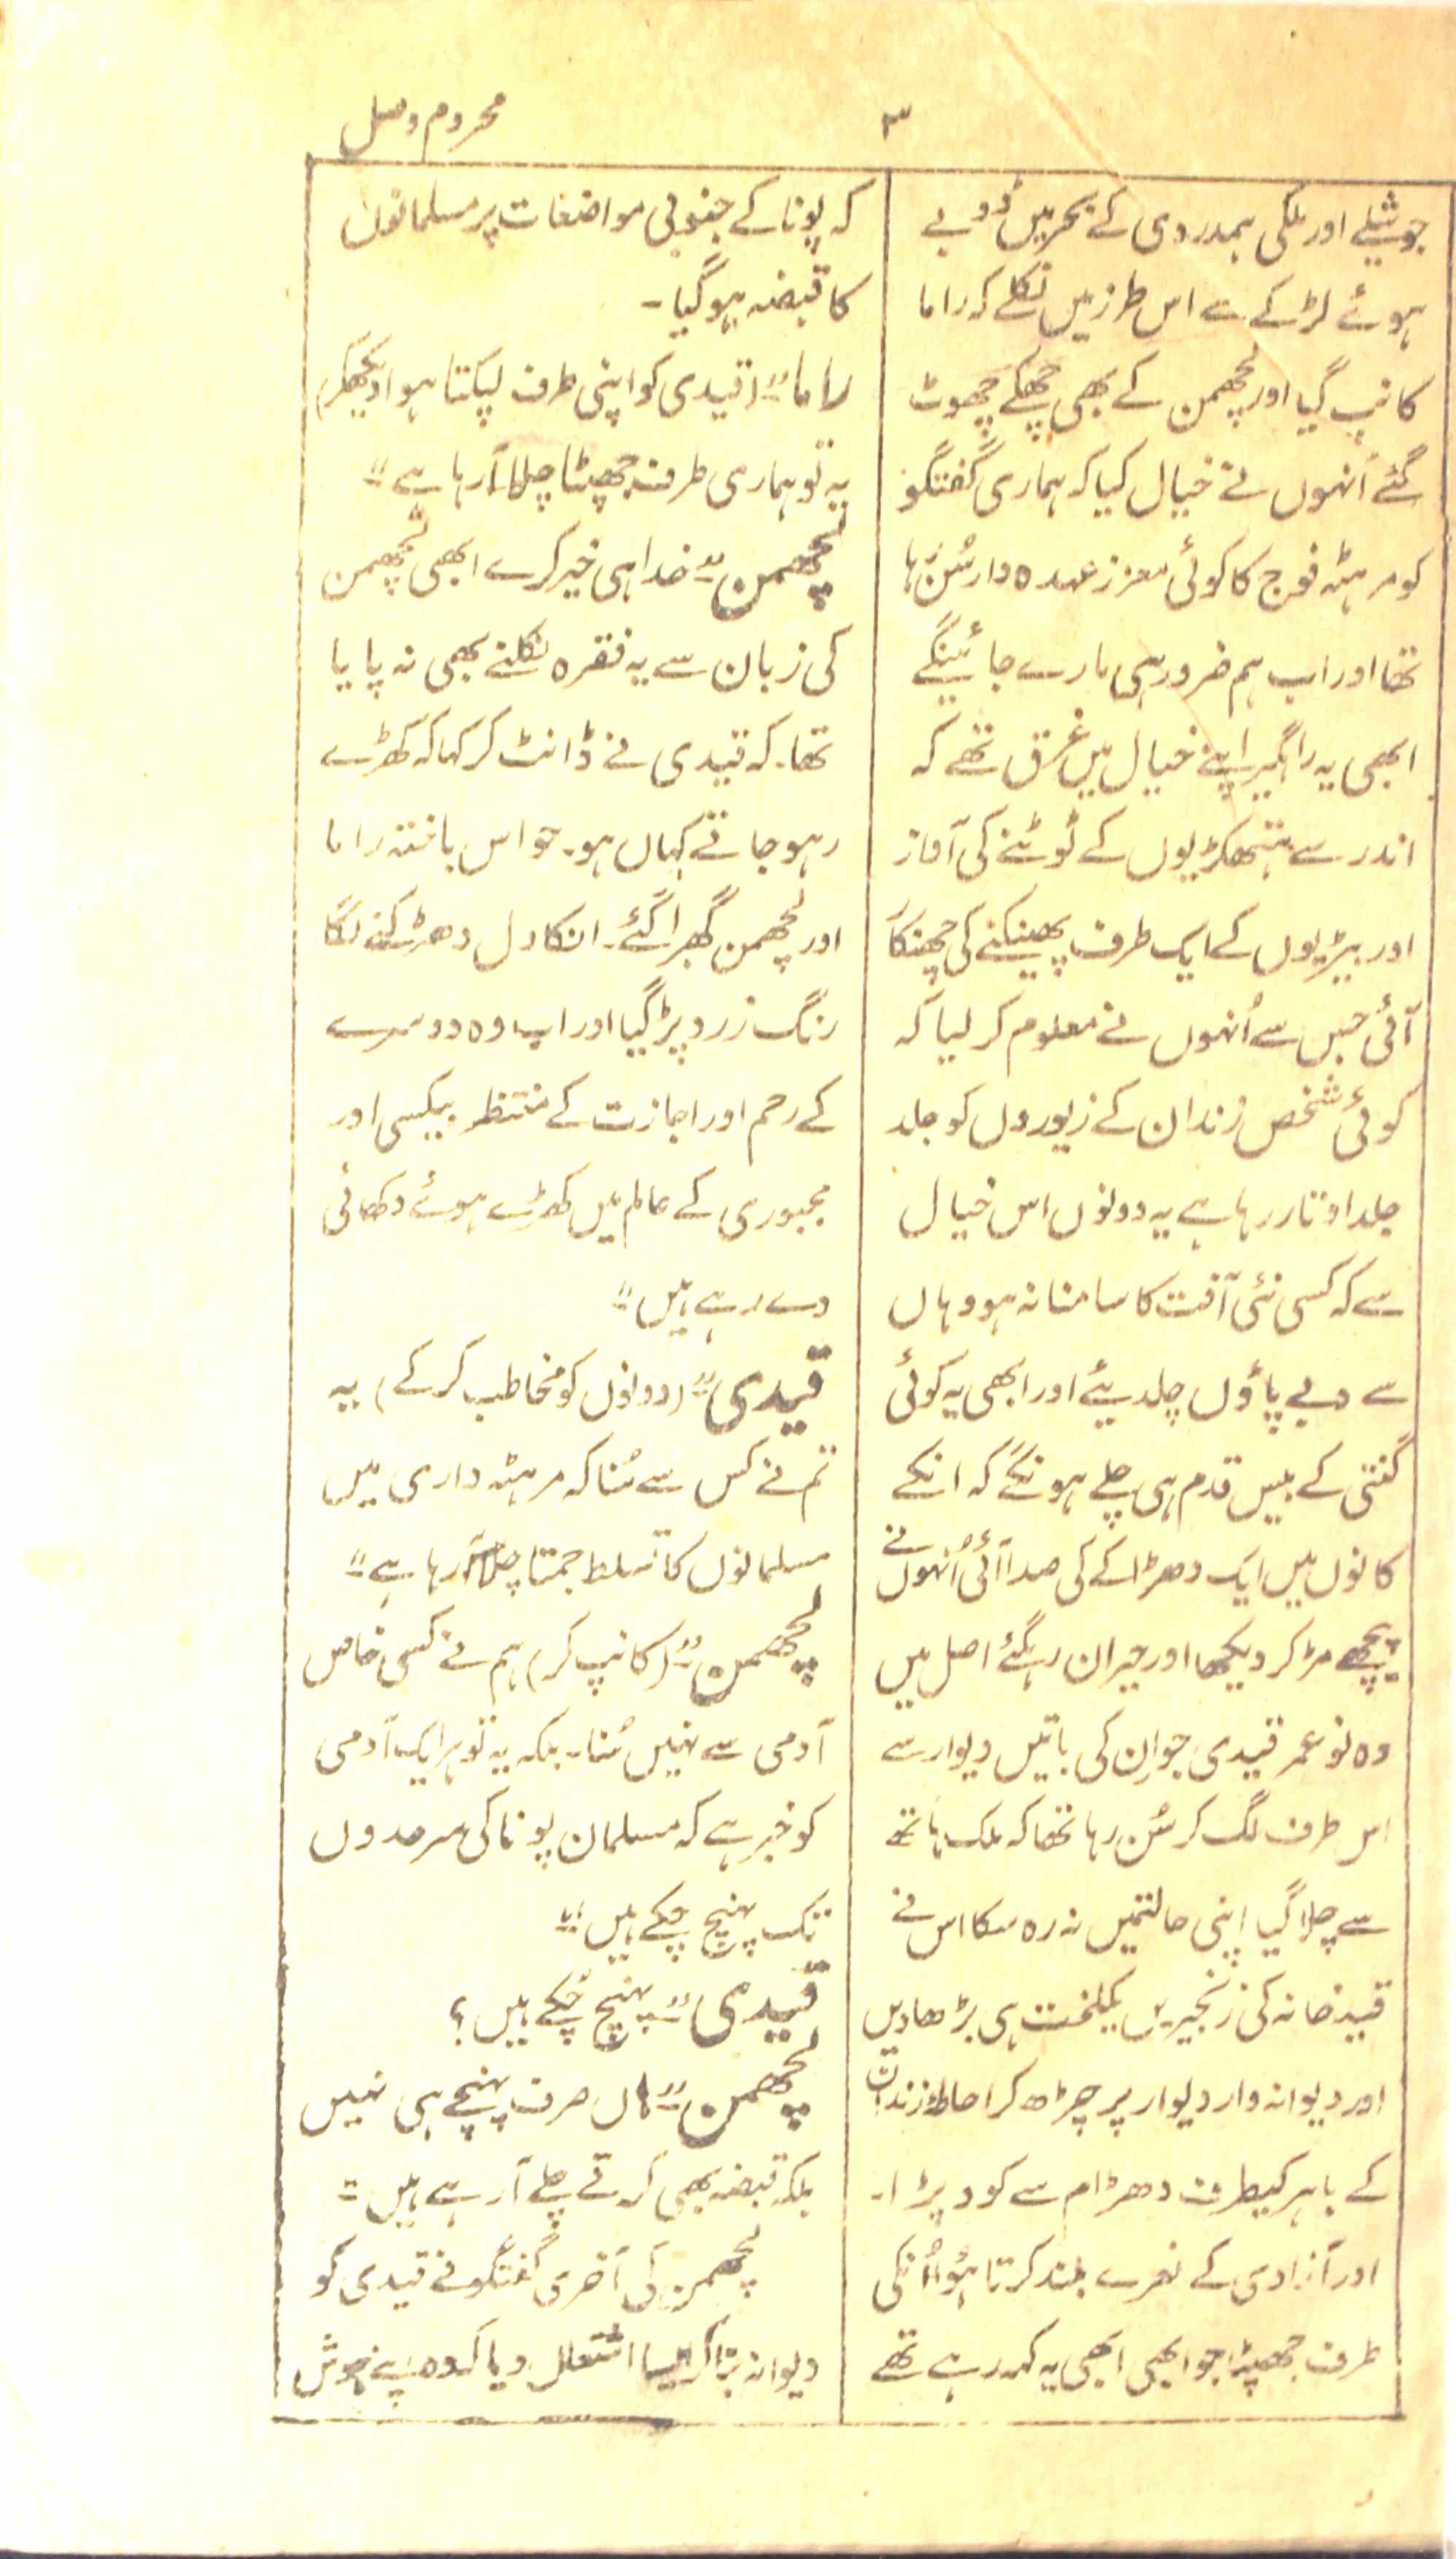 ۳
محروم وصل
جوشیلے اور ملکی ہمدردی کے بحر میں ڈوبے
ہوئے لڑکے سے اس طرز میں نکلے کہ راما
کانپ گیا اور لچھمن کے بھی چھکے چھوٹ
گئے اُنہوں نے خیال کیا کہ ہماری گفتگو
کو مرہٹہ فوج کا کوئی معزز عہدہ دار سُن رہا
تھا اور اب ہم ضرور ہی مارے جائینگے
ابھی یہ راہگیر اپنے خیال میں غرق تھے کہ
اندر سے ہتھکڑیوں کے ٹوٹنے کی آواز
اور بیڑیوں کے ایک طرف پھینکنے کی جھنکار
آئی جس سے اُنہوں نے معلوم کر لیا کہ
کوئی شخص زندان کے زیوروں کو جلد
جلد اوتار رہا ہے یہ دونوں اس خیال
سے کہ کسی نئی آفت کا سامنا نہ ہو وہاں
سے دبے پاؤں چلدیئے اور ابھی یہ کوئی
گنتی کے بیس قدم ہی چلے ہونگے کہ انکے
کانوں میں ایک دھڑاکے کی صدا آئی اُنہوں نے
پیچھے مڑ کر دیکھا اور حیران رہگئے اصل میں
وہ نو عمر قیدی جو ان کی باتیں دیوار سے
اس طرف لگ کر سُن رہا تھا کہ ملک ہاتھ
سے چلا گیا اپنی حالتمیں نہ رہ سکا اس نے
قید خانہ کی زنجیریں یکلخت ہی بڑھا دیں
اور دیوانہ وار دیوار پر چڑھ کر احاطہ زندان
کے باہر کیطرف دھڑام سے کود پڑا۔
اور آزادی کے نعرے بلند کرتا ہُوا اُنکی
طرف جھپٹا جو ابھی ابھی یہ کہہ رہے تھے
کہ پونا کے جنوبی مواضعات پر مسلمانوں
کا قبضہ ہو گیا۔
راما" (قیدی کو اپنی طرف لپکتا ہوا دیکھکر)
یہ تو ہماری طرف جھپٹا چلا آ رہا ہے"
لچھمن" خدا ہی خیر کرے ابھی لچھمن
کی زبان سے یہ فقرہ نکلنے بھی نہ پایا
تھا۔ کہ قیدی نے ڈانٹ کر کہا کہ کھڑے
رہو جاتے کہاں ہو۔ حواس باختہ راما
اور لچھمن گھبرا گئے۔ انکا دل دھڑکنے لگا
رنگ زرد پڑ گیا اور اب وہ دوسرے
کے رحم اور اجازت کے منتظر بیکسی اور
مجبوری کے عالم میں کھڑے ہوئے دکھائی
دے رہے ہیں"
قیدی" (دونوں کو مخاطب کر کے) یہ
تم نے کس سے سُنا کہ مرہٹہ داری میں
مسلمانوں کا تسلط جمتا چلا آ رہا ہے"
لچھمن" (کانپ کر) ہم نے کسی خاص
آدمی سے نہیں سُنا۔ بلکہ یہ تو ہر ایک آدمی
کو خبر ہے کہ مسلمان پونا کی سرحدوں
تک پہنچ چکے ہیں"
قیدی" پہنچ چُکے ہیں؟
لچھمن" ہاں صرف پہنچے ہی نہیں
بلکہ قبضہ بھی کرتے چلے آ رہے ہیں"
لچھمن کی آخری گفتگو نے قیدی کو
دیوانہ بنا کر ایسا اشتعال دیا کہ وہ اپنے ہوش